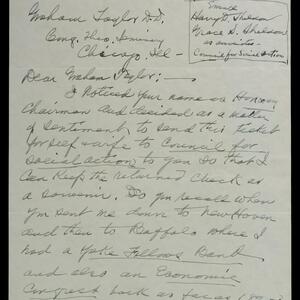 Graham Taylor D.D.
Cong. Theo. Seminary
Chicago Ill—
Harry D. Sheldon
Grace D. Sheldon
as associates
Council for Social Action
Dear Graham Taylor: —
I noticed your name as Honorary
Chairman and decided as a matter
of sentiment to send this ticket
for self & wife to Council for
Social action to you so that I
can keep the returned check as
a souvenir. Do you recall when
you sent me down to New Haven
and then to Buffalo where I
had a Yoke Fellows Band
and also an Economic
Congress back as far as